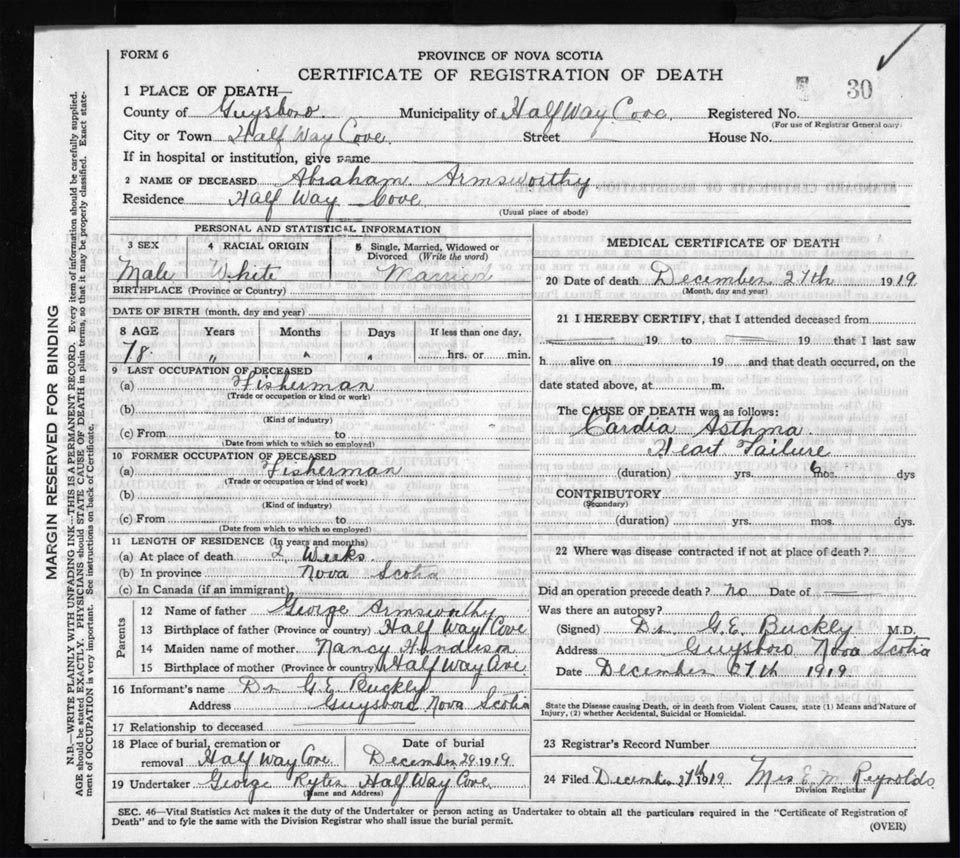 FORM 6
PROVINCE OF NOVA SCOTIA
CERTIFICATE OF REGISTRATION OF DEATH
30
1 PLACE OF DEATH—
County of Guysboro Municipality of Half Way Cove. Registered No.
(For use of Registrar General only.
City or Town Half Way Cove. Street House No.
If in hospital or institution, give name
2 NAME OF DECEASED Abraham Armsworthy
Residence Half Way Cove
(Usual place of abode)
PERSONAL AND STATISTICAL INFORMATION
3 SEX 4 RACIAL ORIGIN 5 Single, Married, Widowed or Divorced (Write the word)
Male White Married
BIRTHPLACE (Province or Country)
DATE OF BIRTH (month, day and year)
8 AGE Years Months Days If less than one day,
78. " " " hrs. or min.
9 LAST OCCUPATION OF DECEASED
(a) Fisherman
(Trade or occupation or kind or work)
(b)
(Kind of industry)
(c) From to
(Date from which to which so employed)
10 FORMER OCCUPATION OF DECEASED
(a) Fisherman
(Trade or occupation or kind of work)
(b)
(Kind of industry)
(c) From to
(Date from which to which so employed)
11 LENGTH OF RESIDENCE (In years and months)
(a) At place of death 2 Weeks
(b) In province Nova Scotia
(c) In Canada (if an immigrant)
Parents
12 Name of father George Armsworthy
13 Birthplace of father (Province or country) Half Way Cove
14 Maiden name of mother Nancy
15 Birthplace of mother (Province or country) Half Way Cove
16 Informant's name Dr G.E. Buckly
Address Guysboro Nova Scotia
17 Relationship to deceased
18 Place of burial, cremation or removal Half Way Cove Date of burial December 29 1919
19 Undertaker George Half Way Cove.
(Name and Address)
MEDICAL CERTIFICATE OF DEATH
20 Date of death December 27th 1919
(Month, day and year)
21 I HEREBY CERTIFY, that I attended deceased from
19 to 19 that I last saw
h alive on 19 and that death occurred, on the
date stated above, at m.
The CAUSE OF DEATH was as follows:
Cardia Asthma.
Heart Failure
(duration) yrs. 6 mos. dys
CONTRIBUTORY
(Secondary)
(duration) yrs. mos. dys.
22 Where was disease contracted if not at place of death?
Did an operation precede death? No Date of
Was there an autopsy?
(Signed) Dr G.E. Buckly M.D.
Address Guysboro Nova Scotia
Date December 27th 1919
State the Disease causing Death, or in death from Violent Causes, state (1) Means and Nature of
Injury, (2) whether Accidental, Suicidal or Homicidal.
23 Registrar's Record Number
24 Filed December 1919 Mrs E. M. Reynolds
Division Registrar
SEC. 46—Vital Statistics Act makes it the duty of the Undertaker or person acting as Undertaker to obtain all the particulars required in the "Certificate of Registration of
Death" and to fyle the same with the Division Registrar who shall issue the burial permit.
(OVER)
MARGIN RESERVED FOR BINDING
N.B.—WRITE PLAINLY WITH UNFADING INK—THIS IS A PERMANENT RECORD. Every item of information should be carefully supplied.
AGE should be stated EXACTLY. PHYSICIANS should STATE CAUSE OF DEATH in plain terms, so that it may be properly classified. Exact state-
ment of OCCUPATION is very important. See instructions on back of Certificate.